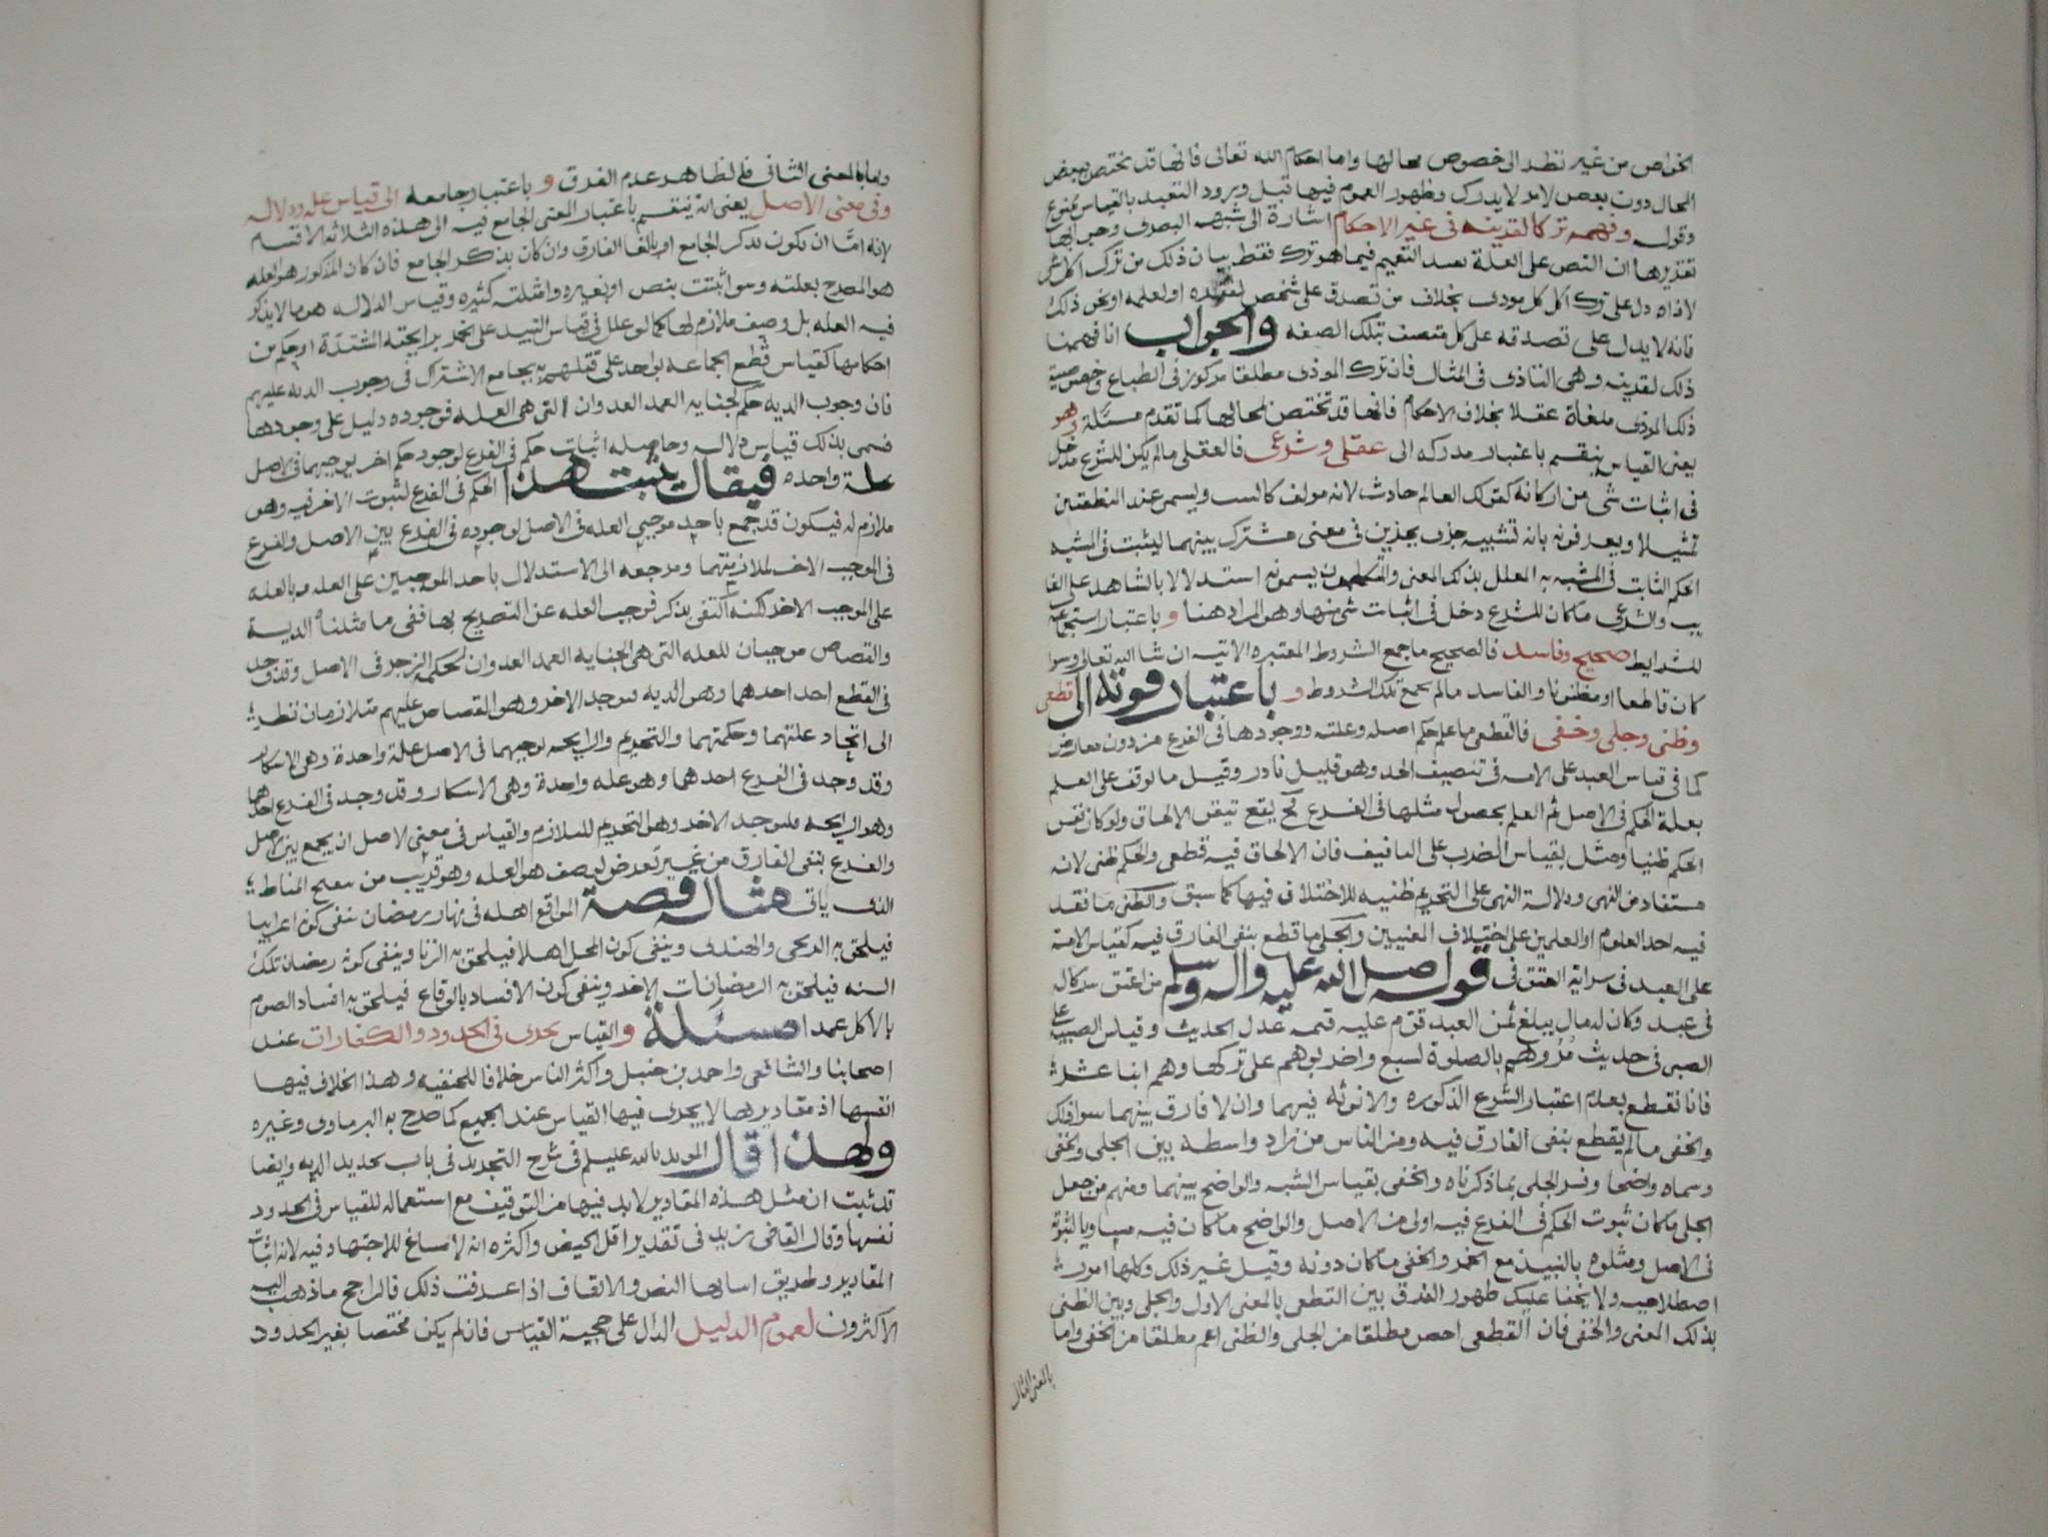 الخواص من غير نظر الى خصوص محالها واما احكام الله تعالى فانها قد تختص ببعض
المحال دون بعض لامر لا يدرك وظهور العموم فيها قبل ورود التعبد بالقياس ممنوع
وقوله وفهمه ترك القرينه في غير الاحكام اشارة الى شبهه البصرى وجوابها
تقريرها ان النص على العلة يفيد التعميم فيما هو ترك فقط بيان ذلك من ترك اكل شى
لاذاه دل على ترك اكل كل موذى بخلاف من تصدق على شخص لفقره او لعلمه او نحو ذلك
فانه لا يدل على تصدقه على كل متصف بتلك الصفه والجواب انا فهمنا
ذلك لقرينه وهى التاذى في المثال فان ترك الموذى مطلقا مركوز في الطباع وخصوصية
ذلك الموذى ملغاة عقلا بخلاف الاحكام فانها قد تختص لمحالها كما تقدم مسئلة وهو
يعنى القياس ينقسم باعتبار مدركه الى عقلى وشرعى فالعقلى ما لم يكن للشرع مدخل
في اثبات شى من اركانه كقولك العالم حادث لانه مولف كالبيت ويسمى عند المنطقيين
تمثيلا ويعرفونه بانه تشبيه جزى بجزى في معنى مشترك بينهما ليثبت في المشبه
الحكم الثابت في المشبه به المعلل بذلك المعنى والمتكلمون يسمونه استدلالا بالشاهد على الغا
يب والشرعى ما كان للشرع دخل في اثبات شى منها وهو المراد هنا وباعتبار استجماعه
للشرايط صحيح وفاسد فالصحيح ما جمع الشروط المعتبره الاتيه ان شا الله تعالى وسوا
كان قاطعا او مظنونا والفاسد ما لم يجمع تلك الشروط و باعتبار قوته الى قطعى
وظنى وجلى وخفى فالقطعى ما علم حكم اصله وعلته ووجودها في الفرع من دون معارض
كما في قياس العبد على الامه في تنصيف الحد وهو قليل نادر وقيل ما توقف على العلم
بعلة الحكم في الاصل ثم العلم بحصول مثلها في الفرع فح يقع تيقن الالحاق ولو كان نفس
الحكم ظنيا ومثل بقياس الضرب على التافيف فان الالحاق فيه قطعى والحكم ظنى لانه
مستفاد من النهى ودلالة النهى على التحريم ظنيه للاختلاف فيها كما سبق والظنى ما فقد
فيه احد العلوم او العلمين على اختلاف المعنيين والجلى ما قطع بنفى الفارق فيه كقياس الامة
على العبد في سراية العتق في قوله صلى الله عليه واله وسلم من اعتق شركا له
في عبد وكان له مال يبلغ ثمن العبد قوم عليه قيمه عدل الحديث وقياس الصبيه على
الصبى في حديث مروهم بالصلوة لسبع واضربوهم على تركها وهم ابنا عشر
فانا نقطع بعدم اعتبار الشرع الذكوره والانوثه فيهما وان لا فارق بينهما سوا ذلك
والخفى ما لم يقطع بنفى الفارق فيه ومن الناس من زاد واسطه بين الجلى والخفى
وسماه واضحا وفسر الجلى بما ذكرناه والخفى بقياس الشبه والواضح بينهما ومنهم من جعل
الجلى ما كان ثبوت الحكم في الفرع فيه اولى من الاصل والواضح ما كان فيه مساويا لثبوته
في الاصل ومثلوه بالنبيذ مع الخمر والخفى ما كان دونه وقيل غير ذلك وكلها امور
اصطلاحيه ولا يخفا عليك ظهور الفرق بين القطعى بالمعنى الاول والجلى وبين الظنى
بذلك المعنى والخفى فان القطعى اخص مطلقا من الجلى والظنى اعم مطلقا من الخفى واما
واما بالمعنى الثانى فالظاهر عدم الفرق و باعتبار جامعه الى قياس علة ودلاله
وفى معنى الاصل يعنى انه ينقسم باعتبار المعنى الجامع فيه الى هذه الثلاثه الاقسام
لانه اما ان يكون بذكر الجامع او بالغا الفارق وان كان بذكر الجامع فان كان المذكور هو العله
هو المصرح بعلته وسوا ثبتت بنص او بغيره وامثلته كثيره وقياس الدلاله هو ما لا يذكر
فيه العله بل وصف ملازم لها كما لو علل في قياس النبيذ على الخمر برايحته المشتدة او حكم من
احكامها كقياس قطع الجماعه بواحد على قتلهم به بجامع الاشتراك في وجوب الديه عليهم
فان وجوب الديه حكم لجنايه العمد العدوان التى هى العله فوجوده دليل على وجودها
فسمى بذلك قياس دلاله وحاصله اثبات حكم في الفرع لوجود حكم اخر يوجبهما في الاصل
علة واحده فيقال يثبت هذا الحكم في الفرع لثبوت الاخر فيه وهو
ملازم له فيكون قد جمع باحد موجبى العله في الاصل لوجوده في الفرع بين الاصل والفرع
في الموجب الاخر لملازمتهما ومرجعه الى الاستدلال باحد الموجبين على العله وبالعله
على الموجب الاخر لكنه اكتفى بذكر موجب العله عن التصريح بها ففى ما مثلناه الدية
والقصاص موجبان للعله التى هى الجنايه العمد العدوان لحكمه الزجر في الاصل وقد وجد
في القطع احد احدهما وهو الديه فيوجد الاخر وهو القصاص عليهم متلازمان نظرا
الى اتحاد علتهما وحكمتهما والتحريم والرايحه يوجبهما في الاصل علة واحدة وهى الاسكار
وقد وجد في الفرع احدهما وهو عله واحدة وهى الاسكار وقد وجد في الفرع احدهما
وهو الرايحه فليوجد الاخر وهو التحريم للتلازم والقياس في معنى الاصل ان يجمع بين الاصل
والفرع بنفى الفارق من غير تعرض لوصف هو العله وهو قريب من تنقيح المناط
الذى ياتى مثاله قصة المواقع اهله في نهار رمضان بنفى كونه اعرابيا
فيلحق به الزنجى والهندى وينفى كون المحل اهلا فيلحق به الزنا وينفى كونه رمضان تلك
السنه فيلحق به الرمضانات الاخر وينفى كون الافساد بالوقاع فيلحق به افساد الصوم
بالاكل عمدا مسئلة والقياس يجرى في الحدود والكفارات عند
اصحابنا والشافعى واحمد بن حنبل واكثر الناس خلافا للحنفيه وهذا الخلاف فيها
انفسها اذ مقاديرها لا يجرى فيها القياس عند الجميع كما صرح به البرماوى وغيره
ولهذا قال المويد بالله عليلم في شرح التجريد في باب تحديد الديه وايضا
قد ثبت ان مثل هذه المقادير لا بد فيها من التوقيف مع استعماله للقياس في الحدود
نفسها وقال القاضى زيد في تقدير اقل الحيض واكثره انه لا مساغ للاجتهاد فيه لانه اثبات
المقادير وطريق اثباتها النص والاتفاق اذا عرفت ذلك فالراجح ما ذهب اليه
الاكثرون لعموم الدليل الدال على حجية القياس فانه لم يكن مختصا بغير الحدود